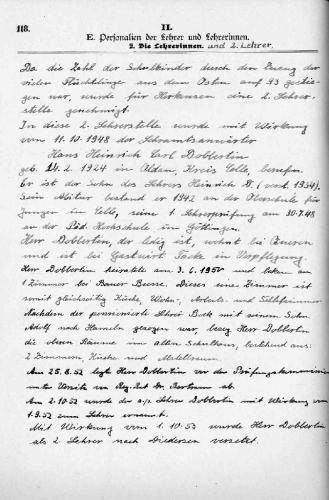 118.
II.
E. Personalien der Lehrer und Lehrerinnen.
2. Die Lehrerinnen. und 2. Lehrer.
Da die Zahl der Schulkinder durch den Zuzug der
vielen Flüchtlinge aus dem Osten auf 93 gestie-
gen war, wurde für Herkensen eine 2. Lehrer-
stelle genehmigt.
In diese 2. Lehrerstelle wurde mit Wirkung
vom 11.10.1948 der Schulamtsanwärter
Hans Heinrich Carl Dobbertin
geb. 14.2.1924 in Oldau, Kreis Celle, berufen.
Er ist der Sohn des Lehrers Heinrich D. (verst. 1934).
Sein Abitur bestand er 1942 an der Oberschule für
Jungen in Celle, seine 1. Lehrerprüfung am 30.7.48
an der Päd. Hochschule in Göttingen.
Herr Dobbertin, der ledig ist, wohnt bei
und ist bei Gastwirt Tacke in Verpflegung.
Herr Dobbertin heiratete am 3.6.1950 und bekam an
1 Zimmer bei Bauer Busse. Dieses eine Zimmer ist
somit gleichzeitig Küche, Wohn-, Arbeits- und Schlafzimmer
Nachdem der pensionierte Lehrer Bock mit seinem Sohn
Adolf nach Hameln gezogen war, bezog Herr Dobbertin
die oberen Räume im alten Schulhaus, bestehend aus:
2 Zimmern, Küche und
Am 25.8.52 legte Herr Dobbertin vor der Prüfungskommission
unter Vorsitz von Reg. Rat Dr. ab.
Am 2.10.52 wurde der a.pl. Lehrer Dobbertin mit Wirkung vom
1.9.52 zum Lehrer ernannt.
Mit Wirkung vom 1.10.53 wurde Herr Dobbertin
als 2. Lehrer nach Diedersen versetzt.